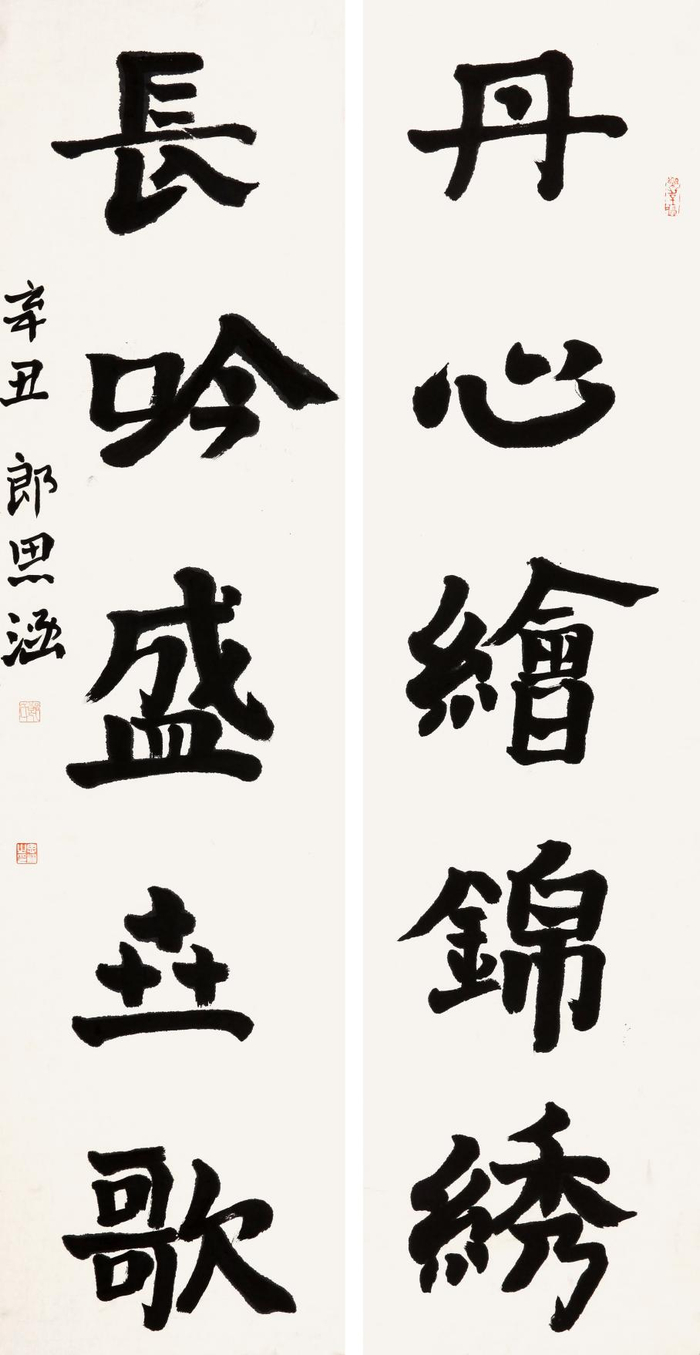 丹心繪錦綉
長吟盛卋歌
辛丑 郎思涵